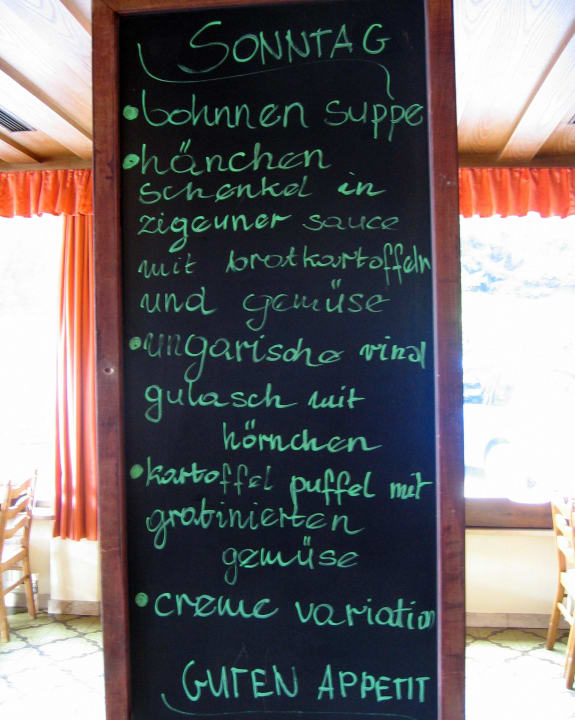 SONNTAG
• bohnnen suppe
• hänchen
schenkel in
zigeuner sauce
mit bratkartoffeln
und gemüse
• ungarische rind
gulasch mit
hörnchen
• kartoffel puffel mit
gratinierten
gemüse
• creme variation
GUTEN APPETIT